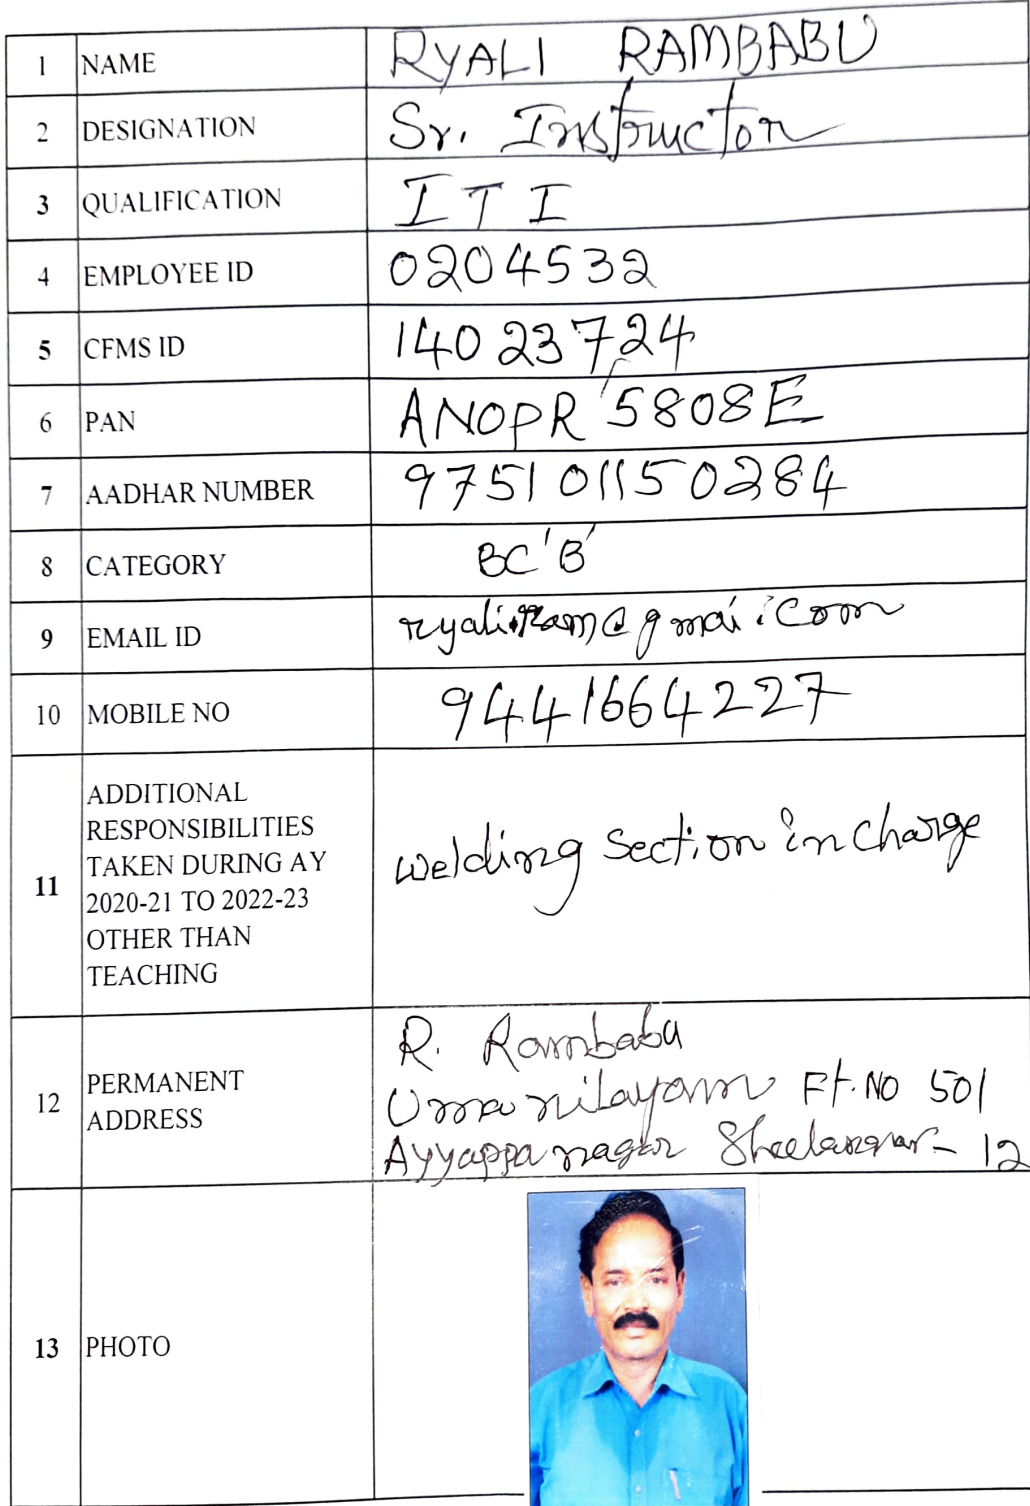 1 NAME RYALI RAMBABU
2 DESIGNATION Sr. Instructor
3 QUALIFICATION ITI
4 EMPLOYEE ID 0204532
5 CFMS ID 14023724
6 PAN ANOPR 5808E
7 AADHAR NUMBER 975101150284
8 CATEGORY BC'B'
9 EMAIL ID
10 MOBILE NO 94441664227
11 ADDITIONAL
RESPONSIBILITIES
TAKEN DURING AY
2020-21 TO 2022-23
OTHER THAN
TEACHING
welding Section in charge
12 PERMANENT
ADDRESS
R. Rambabu
Uma nilayam Ft.No 501
Ayyappa nagar 12
13 PHOTO